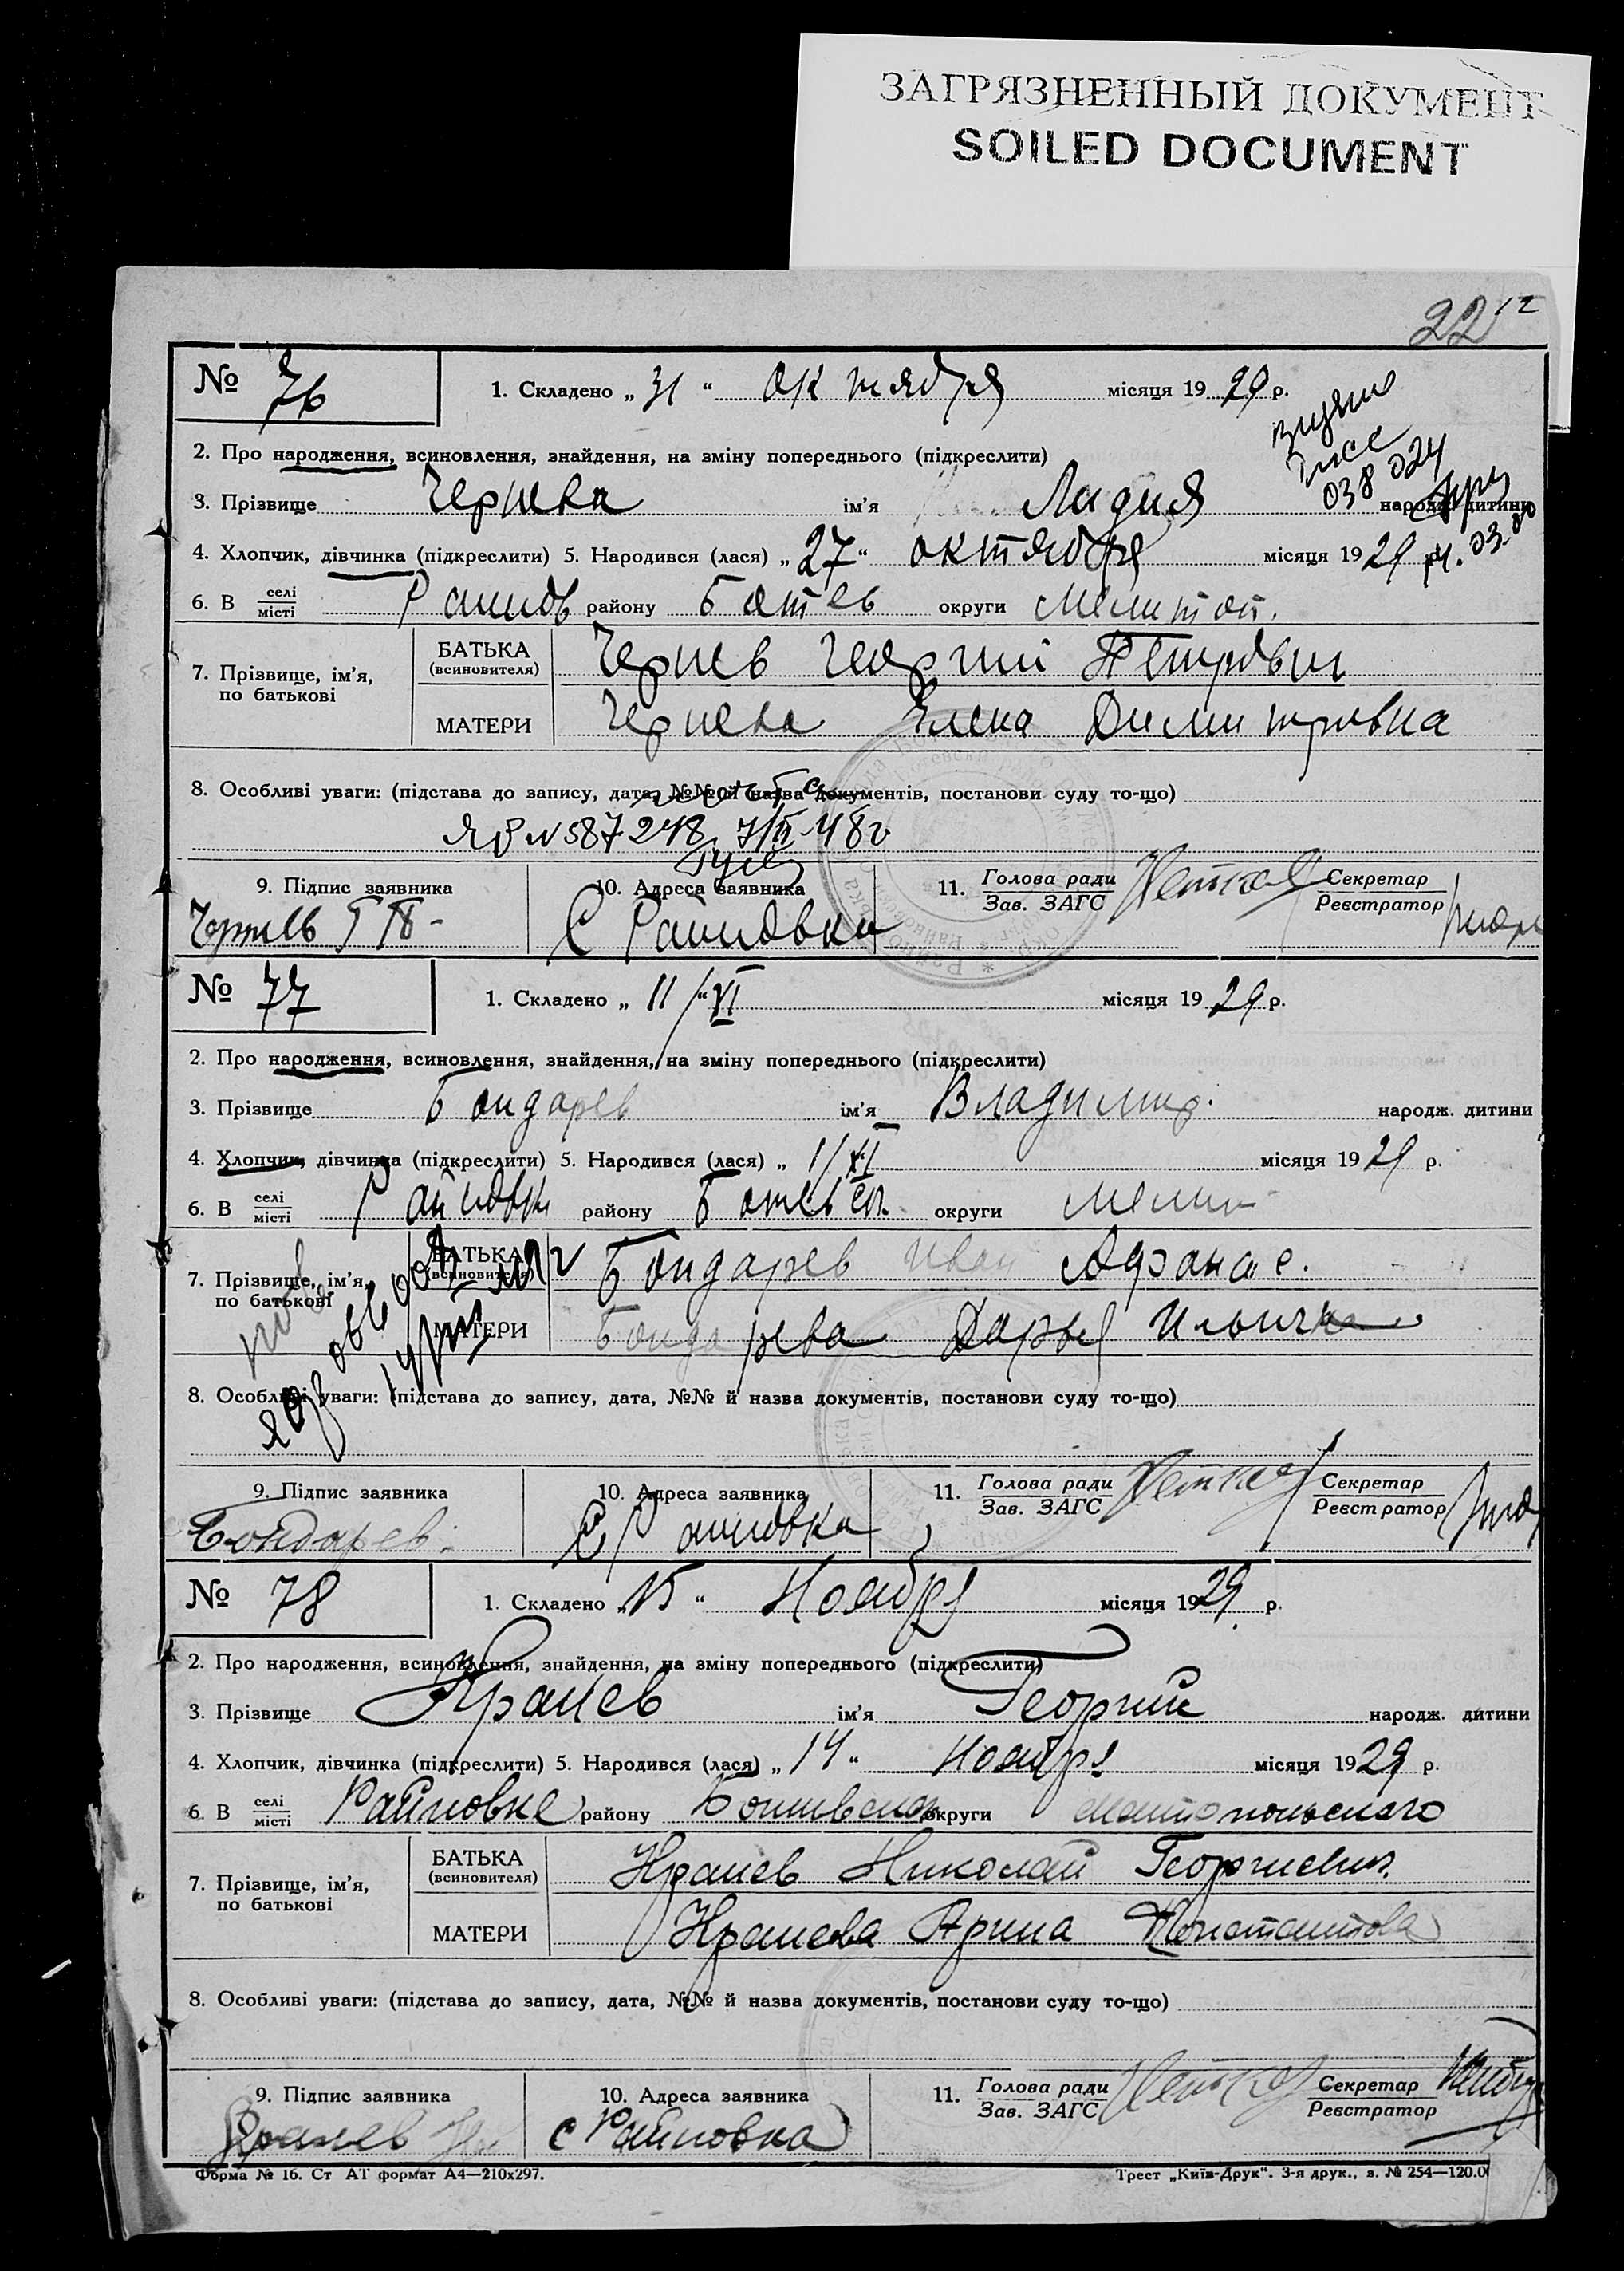 ЗАГРЯЗНЕННЫЙ ДОКУМЕНТ
SOILED DOCUMENT
22
№ 76 1. Складено „ 31 “ октября місяця 19 29 р.
2. Про народження, всиновлення, знайдення, на зміну попереднього (підкреслити)
3. Прізвище Чернева ім’я Лидия народж. дитини
038 024
4. Хлопчик, дівчинка (підкреслити) 5. Народився (лася) „ 27 “ октября місяця 19 29 р.
6. В селі місті Райнов району Ботев округи Мелитоп.
7. Прізвище, ім’я, по батькові
БАТЬКА (всиновителя) Чернев Георгий Петрович
МАТЕРИ Чернева Елена Димитровна
8. Особливі уваги: (підстава до запису, дата, №№ й назва документів, постанови суду то-що)
ЯР № 587248
9. Підпис заявника 10. Адреса заявника 11. Голова ради Зав. ЗАГС Секретар Реєстратор
Чернев Г П С Райновка
№ 77 1. Складено „ 11/XI “ місяця 19 29 р.
2. Про народження, всиновлення, знайдення, на зміну попереднього (підкреслити)
3. Прізвище Бондарев ім’я Владимир. народж. дитини
4. Хлопчик, дівчинка (підкреслити) 5. Народився (лася) „ 1/XI місяця 19 29 р.
6. В селі місті Райновки району Ботевск. округи Мелит
7. Прізвище, ім’я, по батькові
БАТЬКА (всиновителя) Бондарев Иван Афанас.
МАТЕРИ Бондарева Дарья Ильич
8. Особливі уваги: (підстава до запису, дата, №№ й назва документів, постанови суду то-що)
9. Підпис заявника 10. Адреса заявника 11. Голова ради Зав. ЗАГС Секретар Реєстратор
Бондарев. С Райновка
№ 78 1. Складено „ 15 “ Ноября місяця 19 29 р.
2. Про народження, всиновлення, знайдення, на зміну попереднього (підкреслити)
3. Прізвище Кранев ім’я Георгий народж. дитини
4. Хлопчик, дівчинка (підкреслити) 5. Народився (лася) „ 14 “ Ноября місяця 19 29 р.
6. В селі місті Райновке району Ботевского округи
7. Прізвище, ім’я, по батькові
БАТЬКА (всиновителя) Кранев Николай Георгиевич.
МАТЕРИ Кранева Арина Константинова
8. Особливі уваги: (підстава до запису, дата, №№ й назва документів, постанови суду то-що)
9. Підпис заявника 10. Адреса заявника 11. Голова ради Зав. ЗАГС Секретар Реєстратор
Кранев с Райновка
Форма № 16. Ст АТ формат А4—210х297. Трест „Київ-Друк“. 3-я друк., з. № 254—120.0